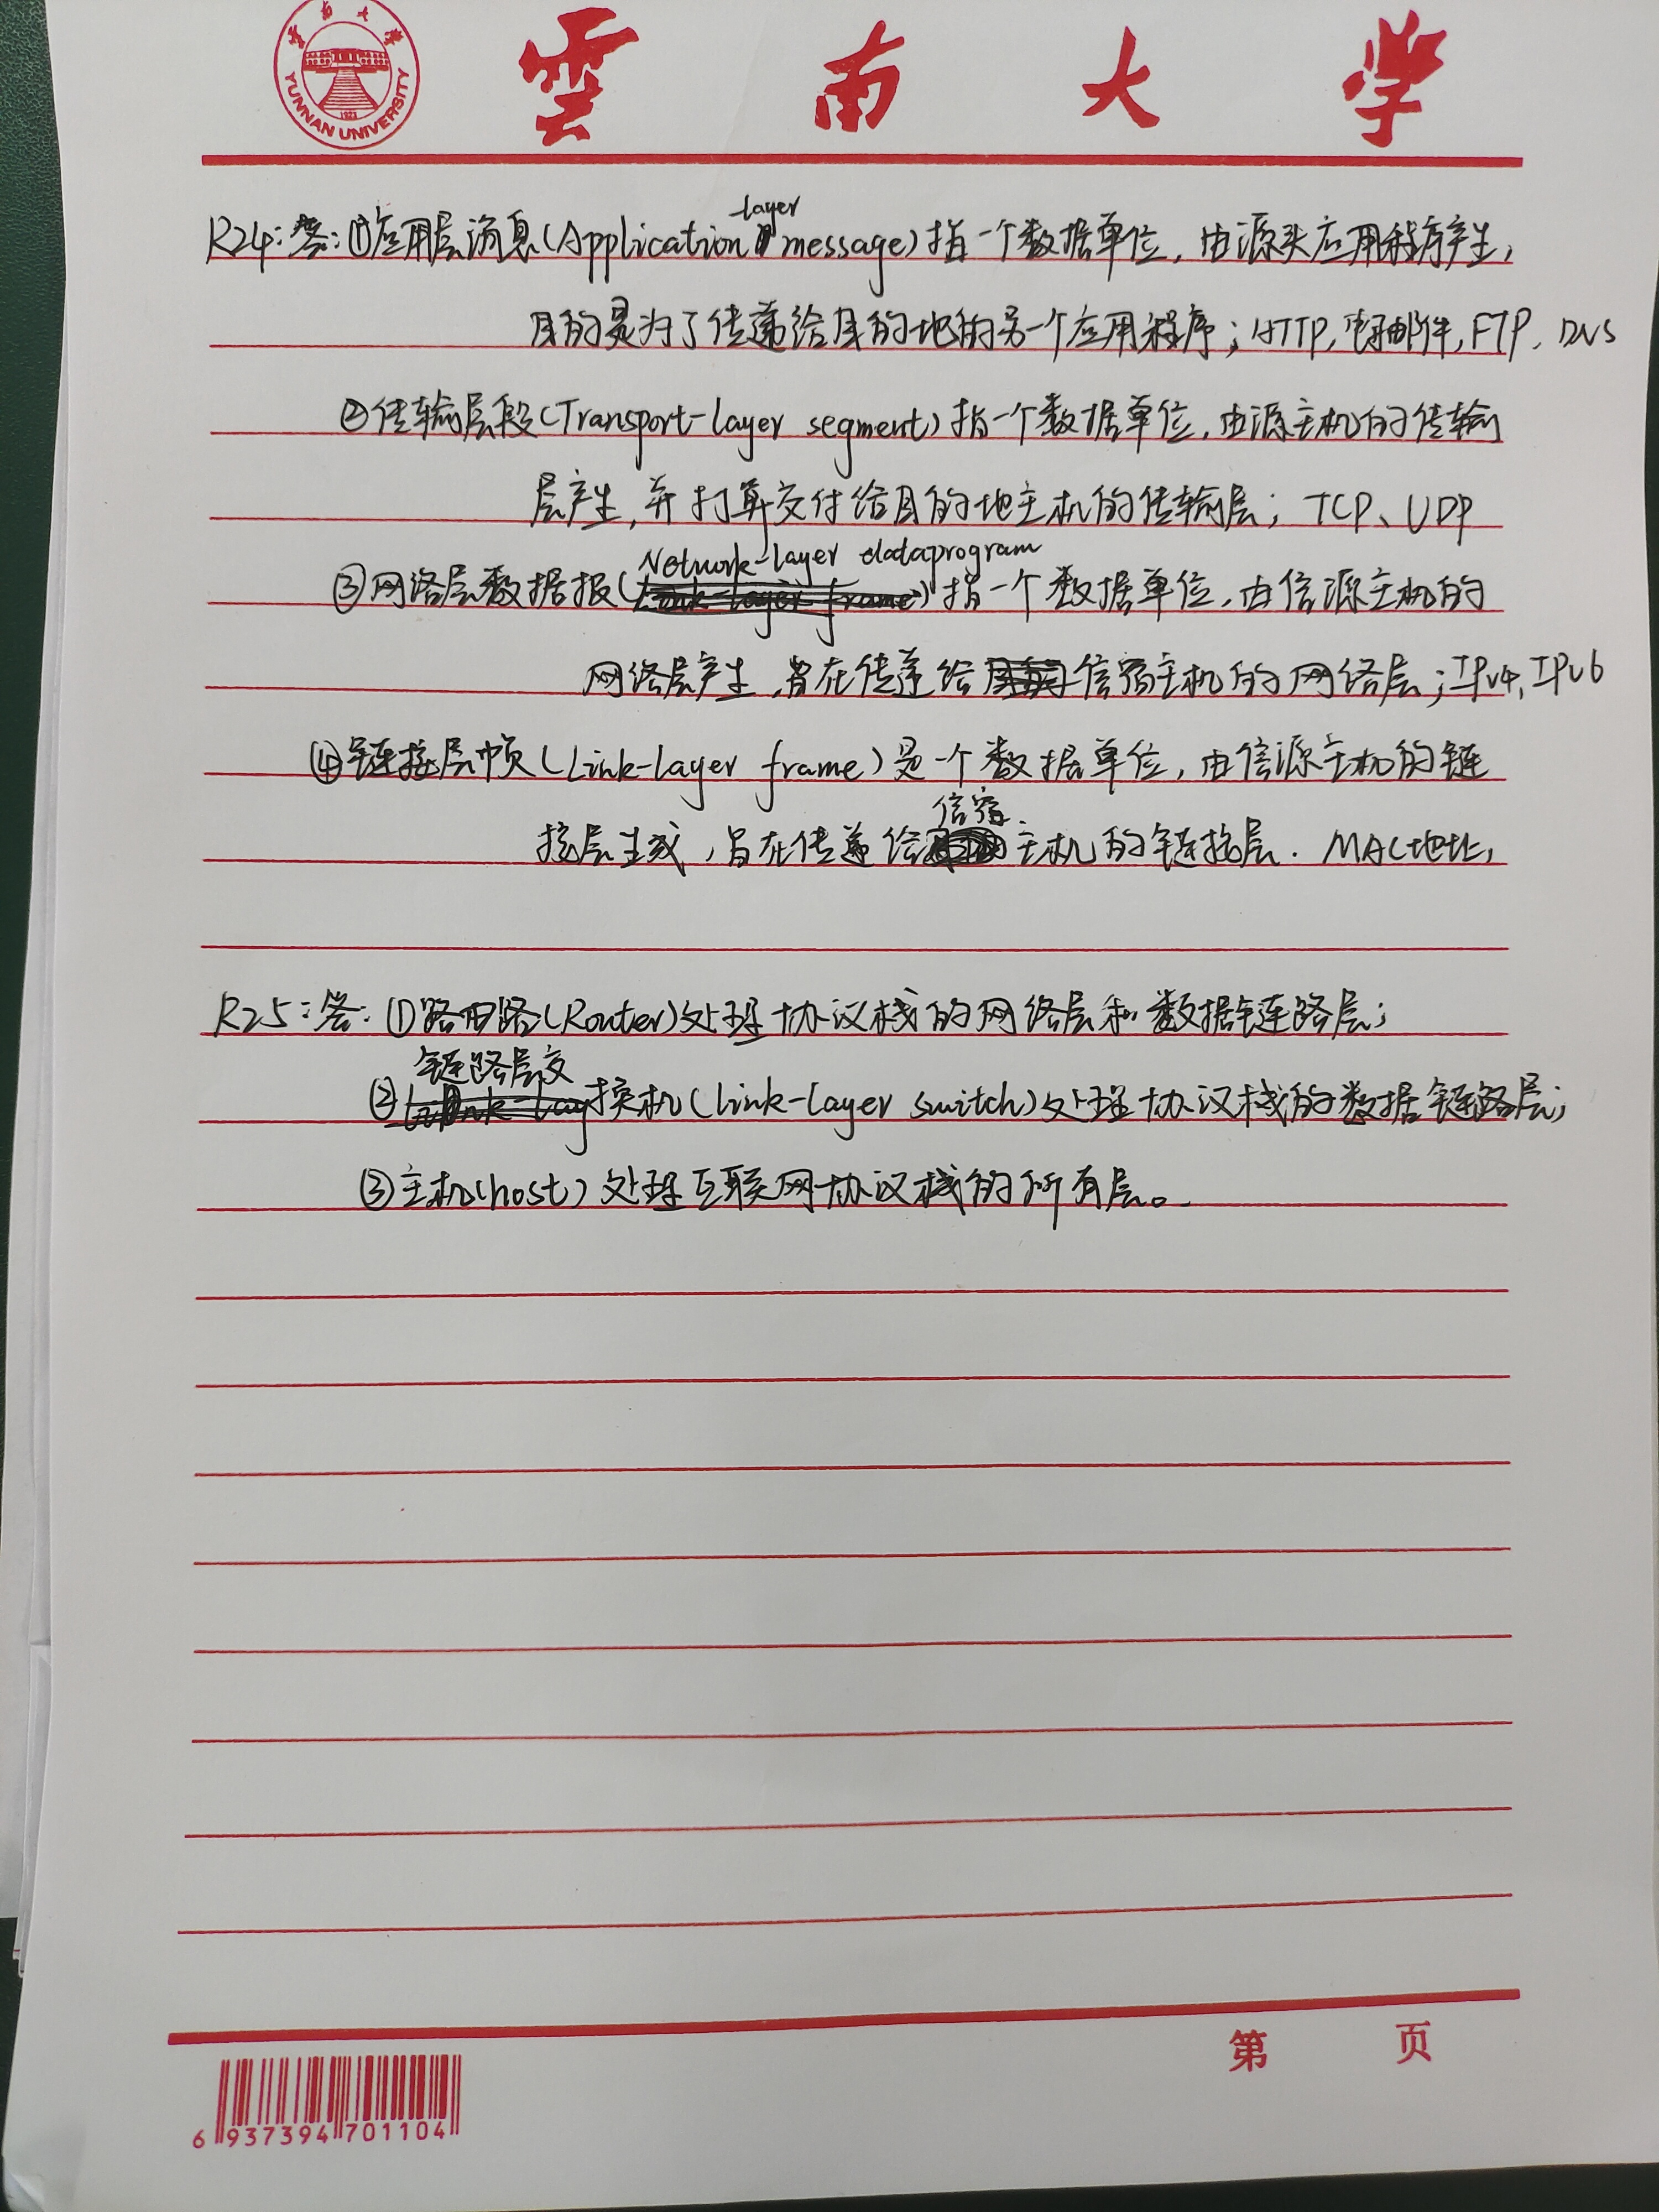 雲南大学
YUNNAN UNIVERSITY
1923
雲南大学
R24:答:①应用层消息(Application-layer message)指一个数据单位,由源头应用程序产生,
目的是为了传递给目的地的另一个应用程序;HTTP,电子邮件,FTP,DNS
②传输层段(Transport-layer segment)指一个数据单位,由源主机的传输
层产生,并打算交付给目的地主机的传输层;TCP、UDP
③网络层数据报(Network-layer dataprogram)指一个数据单位,由信源主机的
网络层产生,旨在传递给信宿主机的网络层;IPv4,IPv6
④链接层帧(Link-layer frame)是一个数据单位,由信源主机的链
接层生成,旨在传递给信宿主机的链接层.MAC地址,
R25:答:①路由路(Router)处理协议栈的网络层和数据链路层;
②链路层交换机(link-layer switch)处理协议栈的数据链路层;
③主机(host)处理互联网协议栈的所有层。
第 页
6 937394 701104